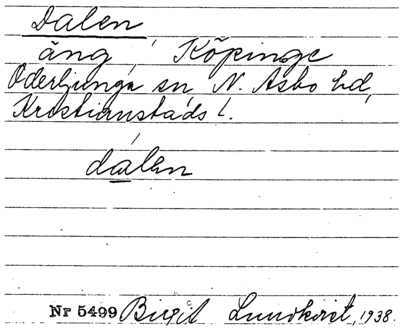 Dalen
äng, Köpinge
Oderljunga sn N. Åsbo hd,
Kristianstads l.
dalen
Nr 5499 Birgit Lundkvist, 1938.